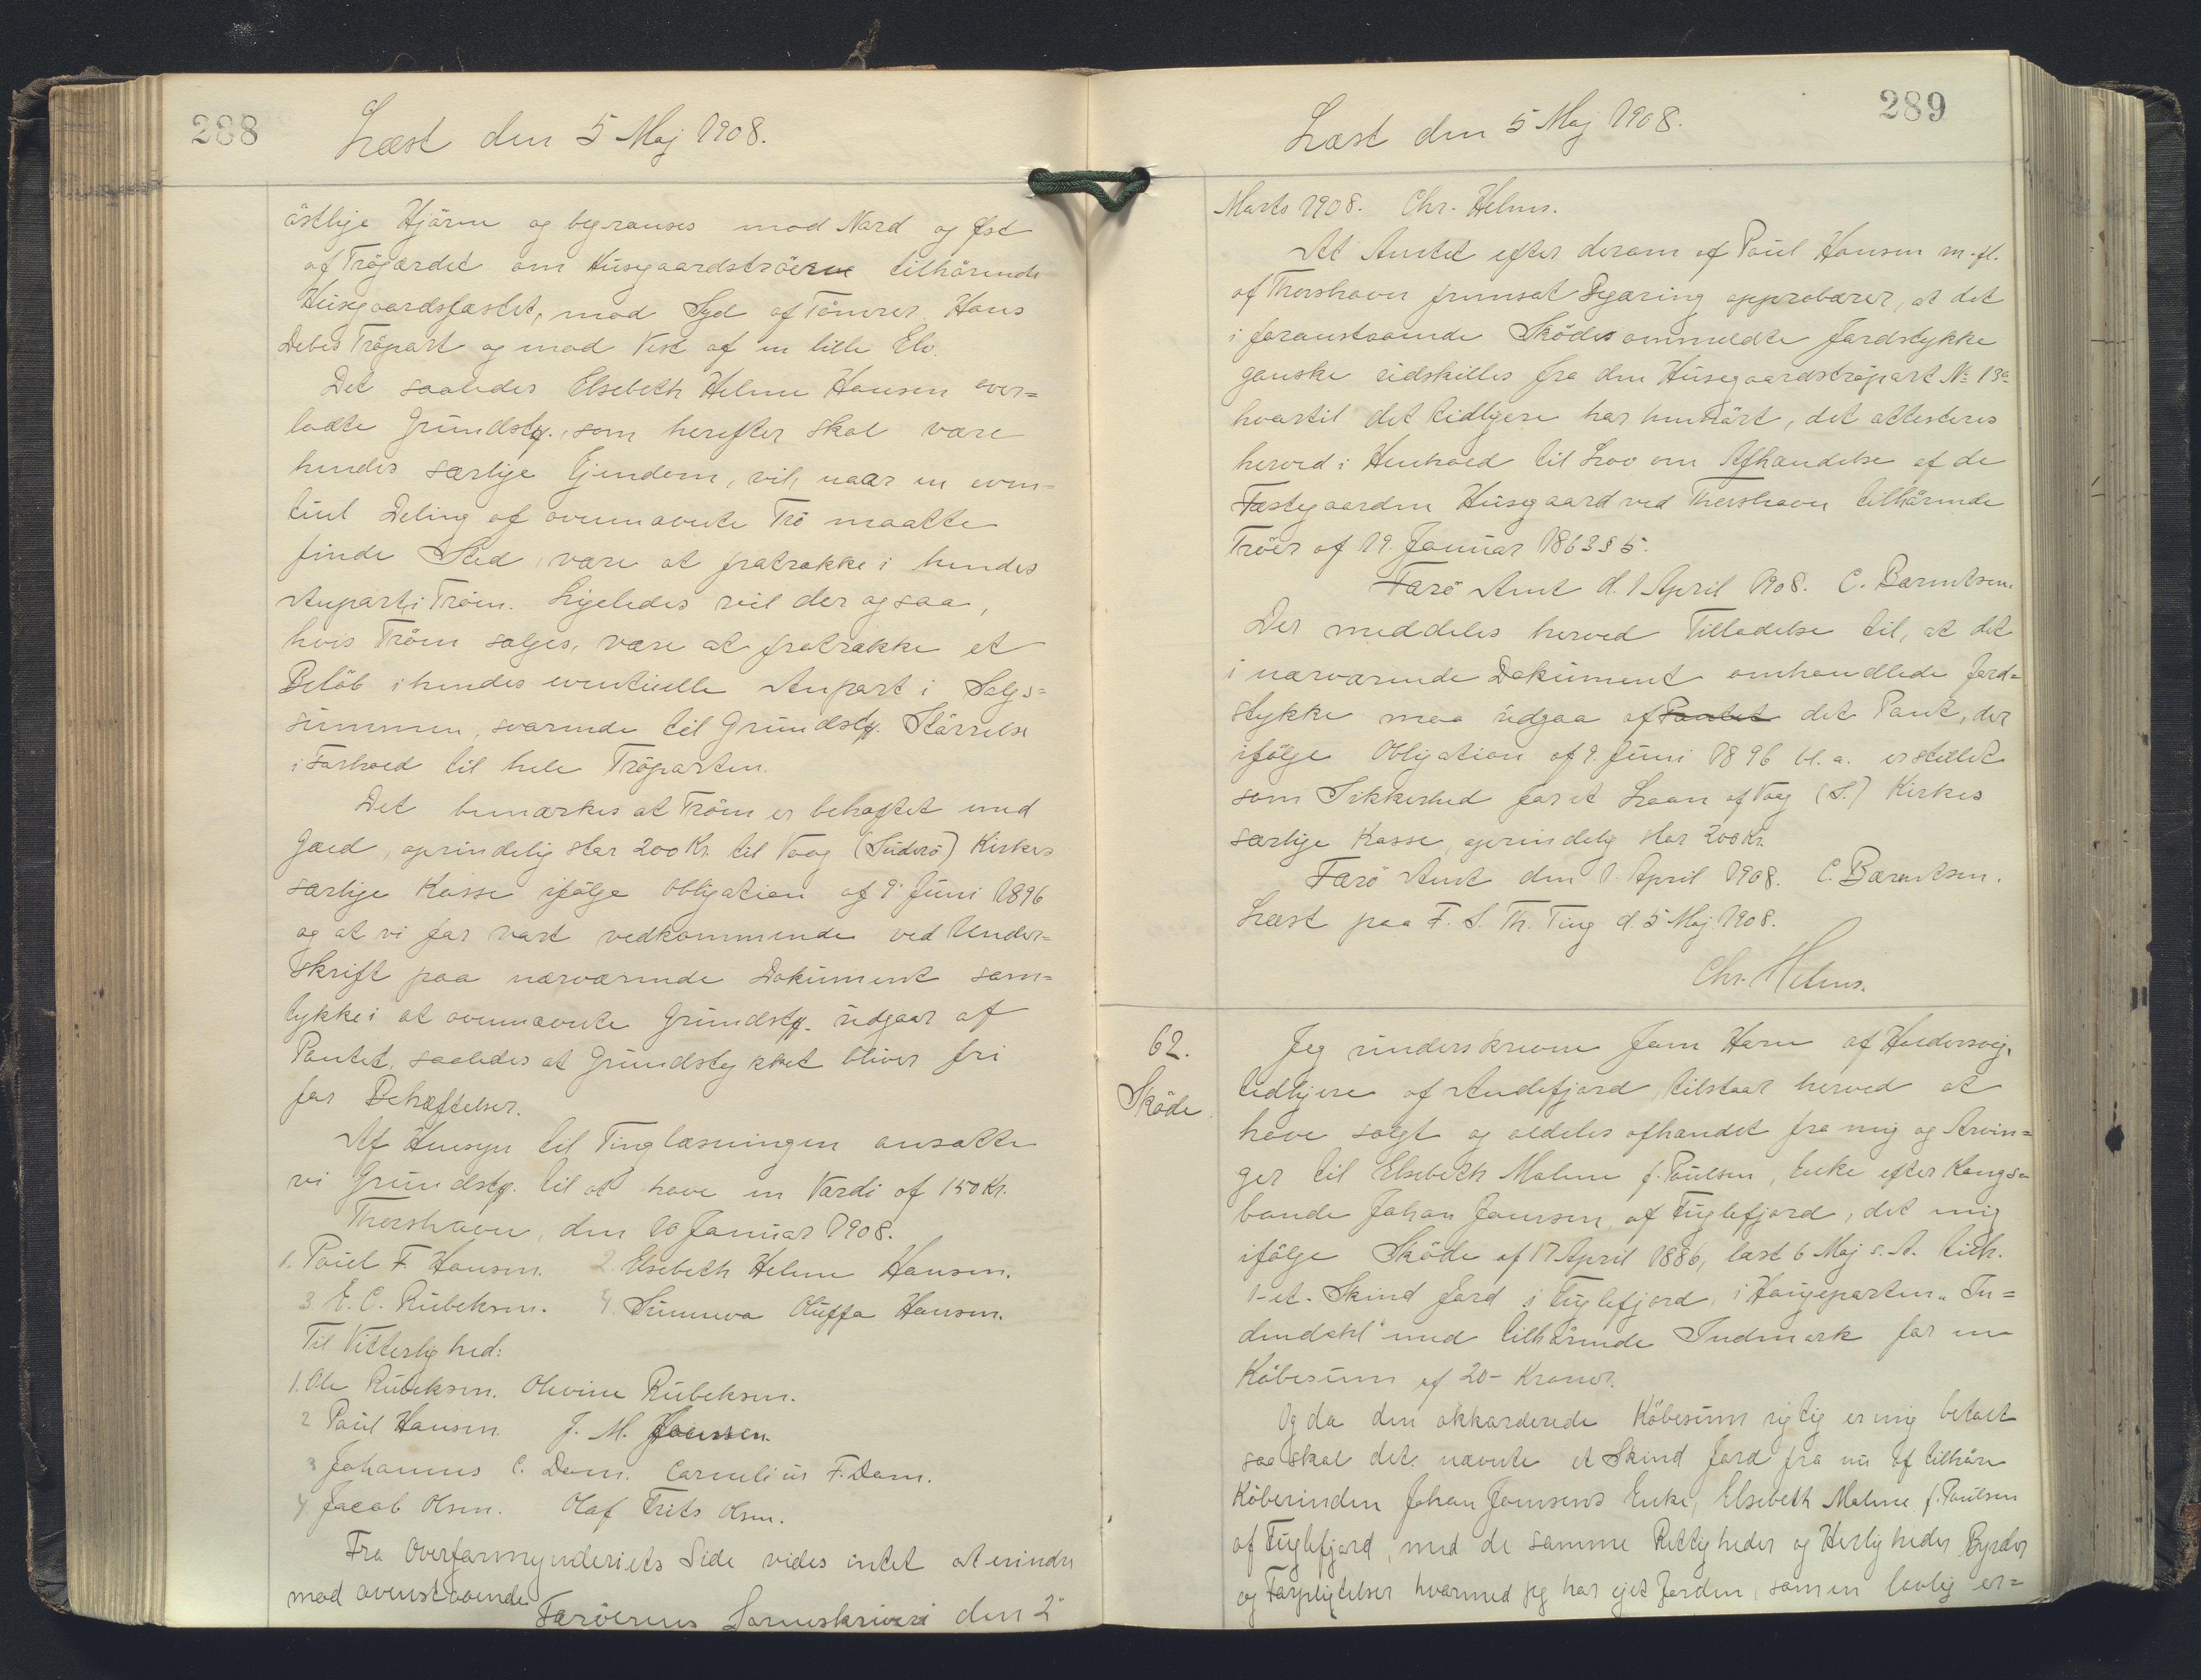 288
Læst den 5 Maj 1908.
östlige Hjörne og begrænses mod Nord og Øst
af Trögærdet om Husgaardströerne tilhörende
Husgaardsfæstet, mod Syd af Tömrer Hans
Debes Tröpart og mod Vest af en lille Elv.
Det saaledes Elsebeth Helene Hansen over=
ladte Grundstk., som herefter skal være
hendes særlige Ejendom, vil, naar en even=
tuel Deling af ovennævnte Trö maatte
finde Sted, være at fratrække i hendes
Anpart i Tröen. Ligeledes vil der ogsaa,
hvis Tröen sælges, være at fratrække et
Belöb i hendes eventuelle Anpart i Salgs=
summen, svarende til Grundstk. Störrelse
i Forhold til hele Tröparten.
Det bemærkes at Tröen er behæftet med
Gæld, oprindelig stor 200 Kr. til Vaag (Suderö) Kirkes
særlige Kasse ifölge Obligation af 9' Juni 1896
og at vi for vort vedkommende ved Under=
skrift paa nærværende Dokument sam=
tykke i at ovennævnte Grundstk. udgaar af
Pantet, saaledes at Grundstykket bliver fri
for Behæftelser.
Af Hensyn til Tinglæsningen ansætte
vi Grundstk. til at have en Værdi af 150 Kr.
Thorshavn, den 10 Januar 1908.
1. Poul F. Hansen. 2. Elsebeth Helene Hansen.
3 E. C. Rubeksen. 4. Sunneva Oluffa Hansen.
Til Vitterlighed:
1. Ole Rubeksen. Olevine Rubeksen.
2 Poul Hansen. J. M. Joensen.
3 Johannes C. Dam. Cornelius F. Dam.
4 Jacob Olsen. Olaf Frits Olsen.
Fra Overformynderiets Side vides intet at erindre
mod ovenstaaende
Færöernes Sorenskriveri den 2'
289
Læst den 5 Maj 1908.
Marts 1908. Chr. Helms.
At Amtet efter derom af Poul Hansen m. fl.
af Thorshavn fremsat Begæring approberer, at det
i foranstaaende Sködes ommeldte Jordstykke
ganske udskilles fra den Husegaardströpart № 13a
hvortil det tidligere har henhört, det attesteres
herved i Henhold til Lov om Afhændelse af de
Fæstegaarden Husgaard ved Thorshavn tilhörende
Tröer af 19. Januar 1863 § 5.
Færö Amt d. 1 April 1908. C. Bærentsen.
Der meddeles herved Tilladelse til, at det
i nærværende Dokument omhandlede Jord=
stykke maa udgaa af Pantet det Pant, der
ifölge Obligation af 9. Juni 1896 bl. a. er stillet
som Sikkerhed for et Laan af Vaag (S.) Kirkes
særlige Kasse, oprindelig stor 200 Kr.
Færö Amt den 1. April 1908. C. Bærentsen.
Læst paa F. S. Th. Ting d. 5 Maj 1908.
Chr. Helms.
62.
Sköde
Jeg underskrevne Joen Horn af Haldersvig,
tidligere af Andefjord, tilstaar herved at
have solgt og aldeles afhændet fra mig og Arvin=
ger til Elsebeth Malene f. Poulsen, Enke efter Kongs=
bonde Johan Joensen af Fuglefjord, det mig
ifölge Sköde af 17 April 1886, læst 6 Maj s. A. tilh.
1- et. Skind Jord i Fuglefjord, i Haugeparten „In=
dendahl" med tilhörende Indmark for en
Köbesum af 20- Kroner.
Og da den akkorderede Köbesum rigtig er mig betalt
saa skal det nævnte et Skind Jord fra nu af tilhöre
Köberinden Johan Joensens Enke, Elsebeth Malene f. Poulsen
af Fuglefjord, med de samme Rettigheder og Herligheder Byrder
og Forpligtelser hvormed jeg har ejet Jorden, som en lovlig er=